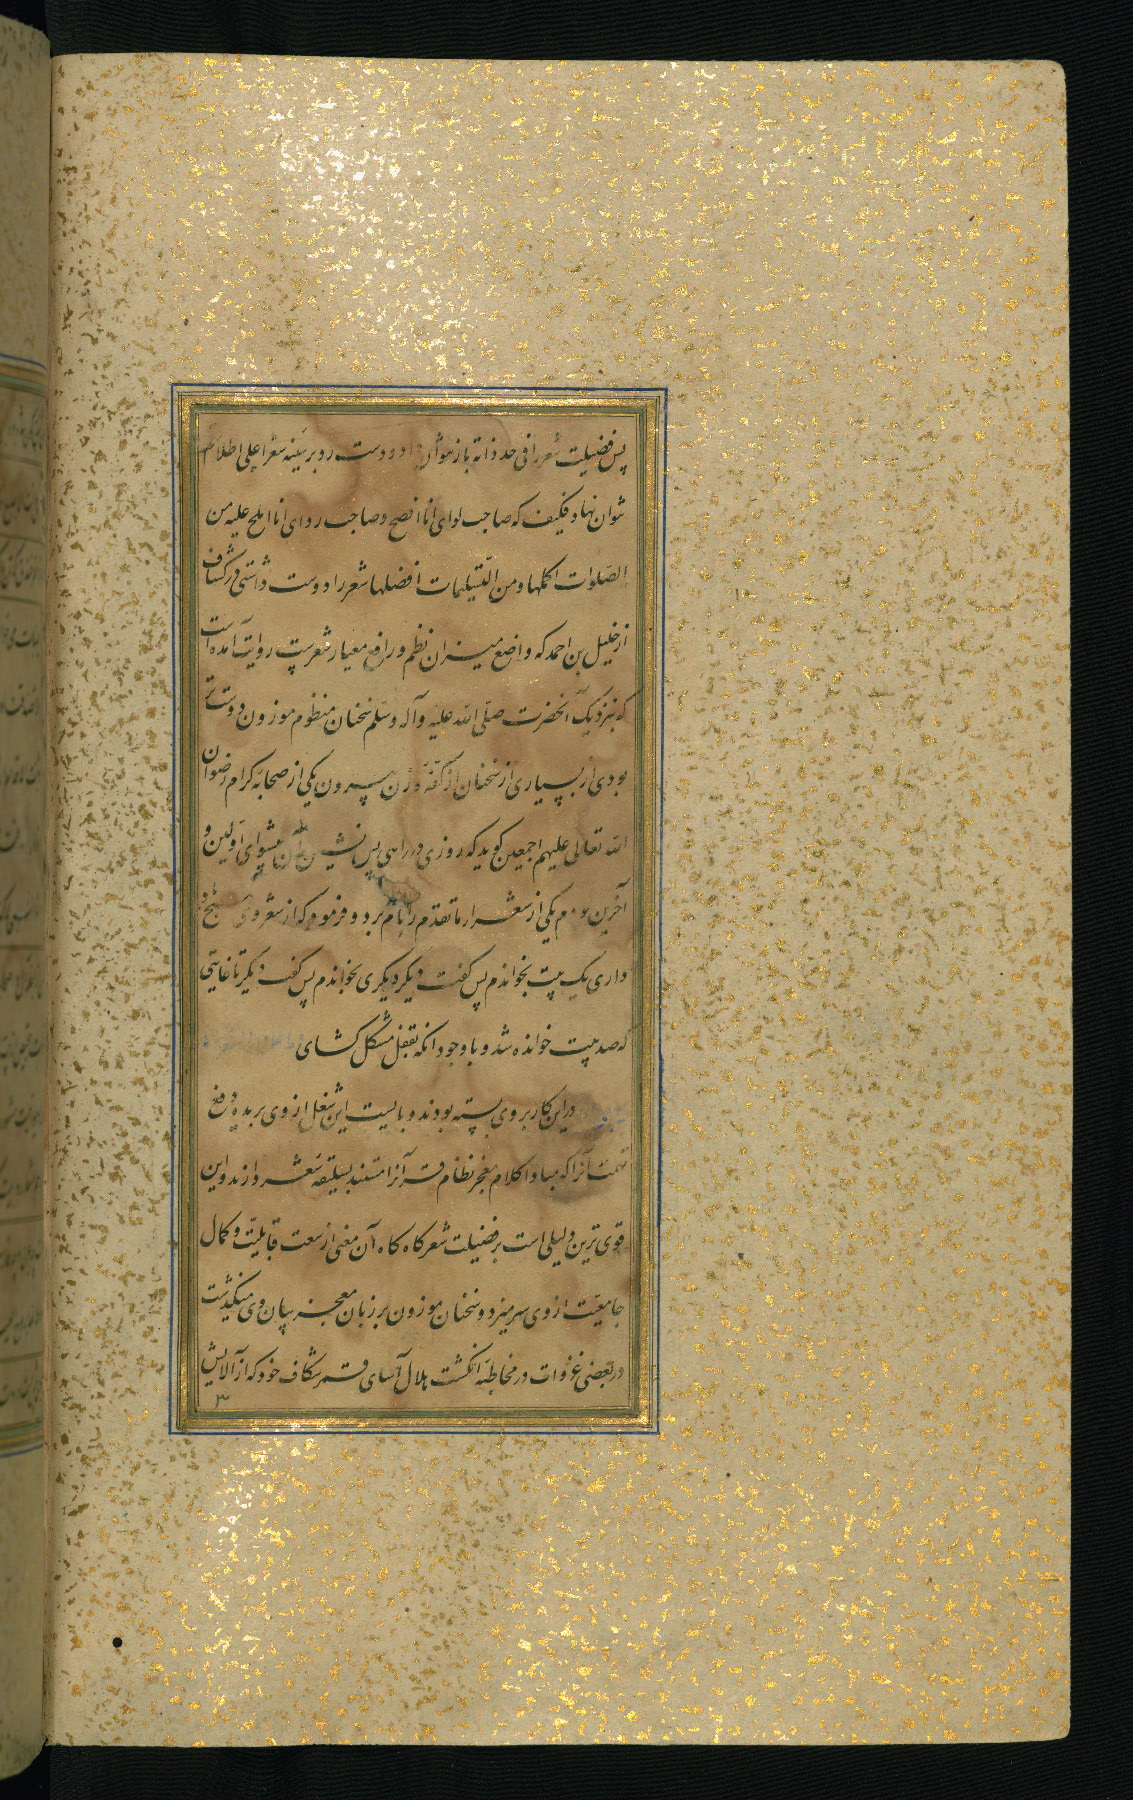 پس فضیلت شعر را فی حد ذاته باز نتوان داد و دست رد بر سینه شعرا علی اطلاقهم
نتوان نهاد فکیف که صاحب لوای انا افصح و صاحب ردای انا املح علیه من
الصلوات اکملها و من التسلیمات افضلها شعر را دوست داشتی در کشاف
از خلیل بن احمد که واضع میزان نظم و رافع معیار شعرست روایت آمده است
که نزدیک آنحضرت صلی الله علیه وآله وسلم سخنان منظوم موزون دوست‌تر
بودی از بسیاری از سخنان از کفه وزن بیرون یکی از صحابه کرام رضوان
الله تعالی علیهم اجمعین کوید که روزی در راهی پس نشین آن پیشوای اولین و
آخرین بودم یکی از شعراء ماتقدم را نام برد و فرمود که از شعر وی هیچ
داری یک بیت بخواندم پس کفت دیکر دیکری بخواندم پس کفت دیکر تا غایتی
که صد بیت خوانده شد و با وجود انکه بقفل مشکل کشای
در این کار بر وی بسته بودند و بایست این شغل از وی بریده دفع
تهمت آنرا که مبادا کلام معجز نظام قرآنرا مستند بسلیقه شعر دارند و این
قوی ترین دلیلی است بر فضیلت شعر کاه کاه آن معنی از سعت قابلیت و کمال
جامعیت از وی سر میزد و سخنان موزون بر زبان معجز بیان وی میکذشت
در بعضی غزوات در مخاطبه انکشت هلال آسای قمر شکاف خود که از آلایش
۳